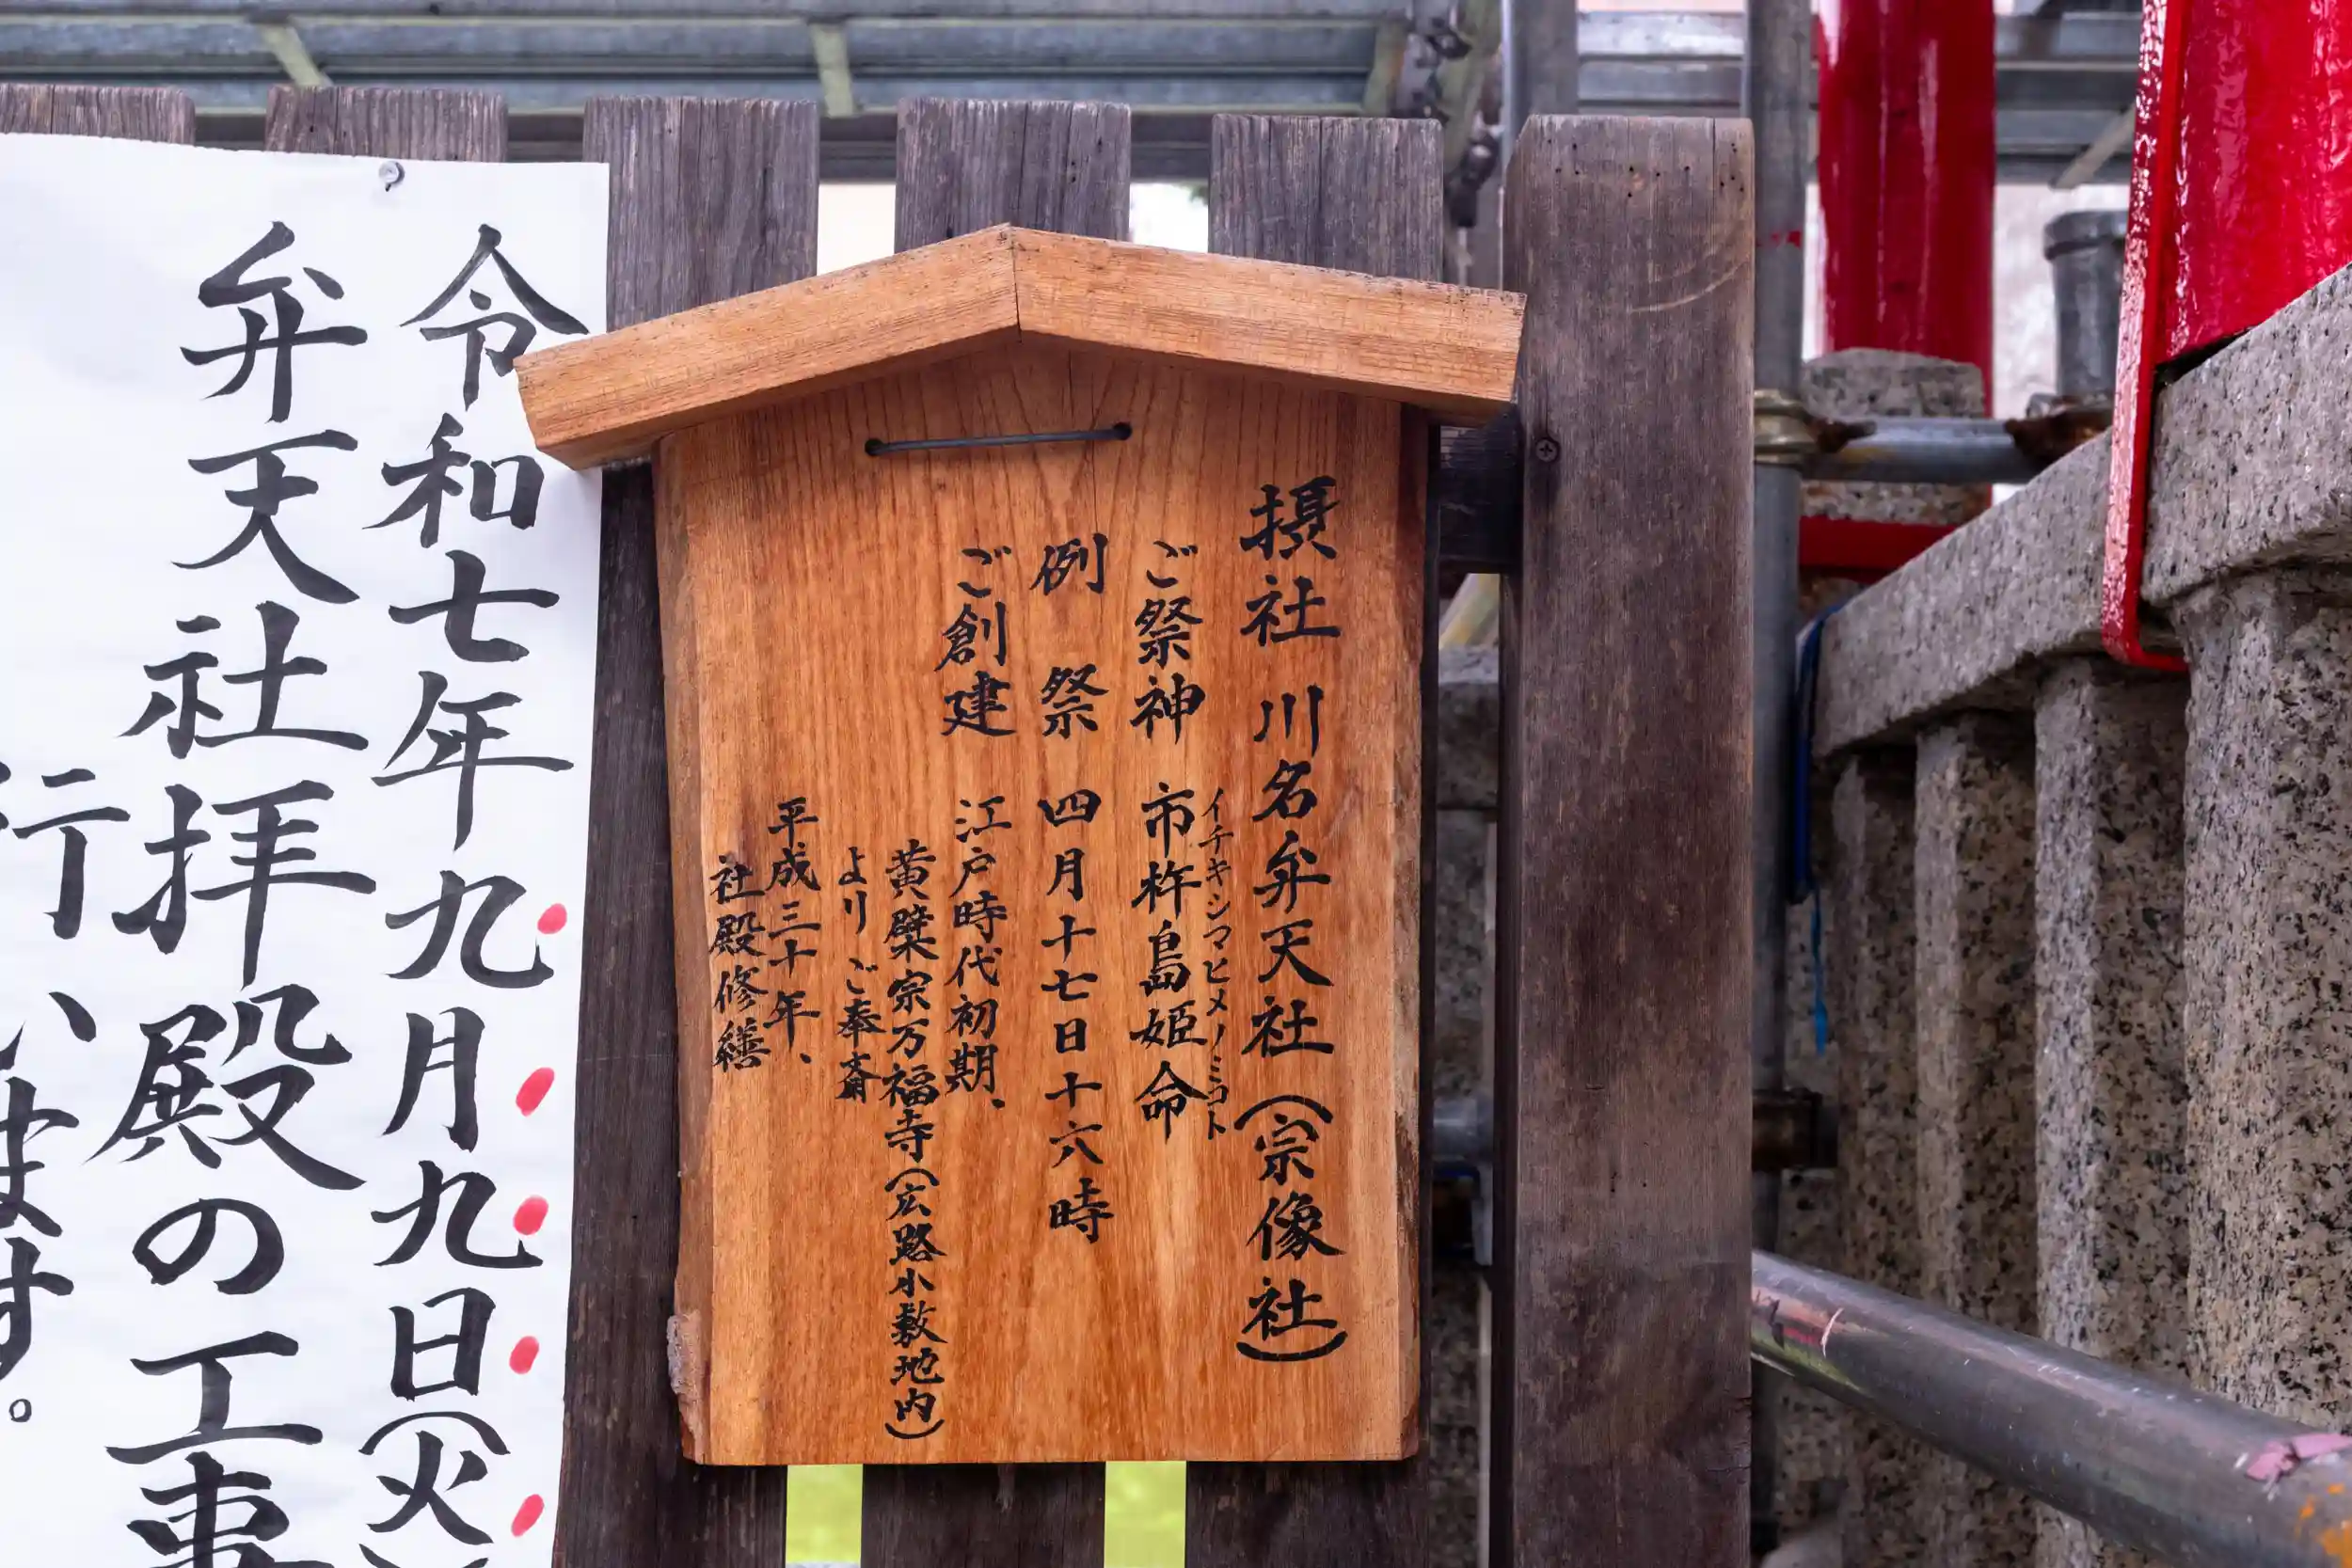 摂社 川名弁天社（宗像社）
ご祭神 市杵島姫命
イチキシマヒメノミコト
例祭 四月十七日十六時
ご創建 江戸時代初期、
黄檗宗万福寺（広路小敷地内）
より ご奉斎
平成三十年、
社殿修繕
令和七年九月九日（火
弁天社拝殿の工事
行い
ます。